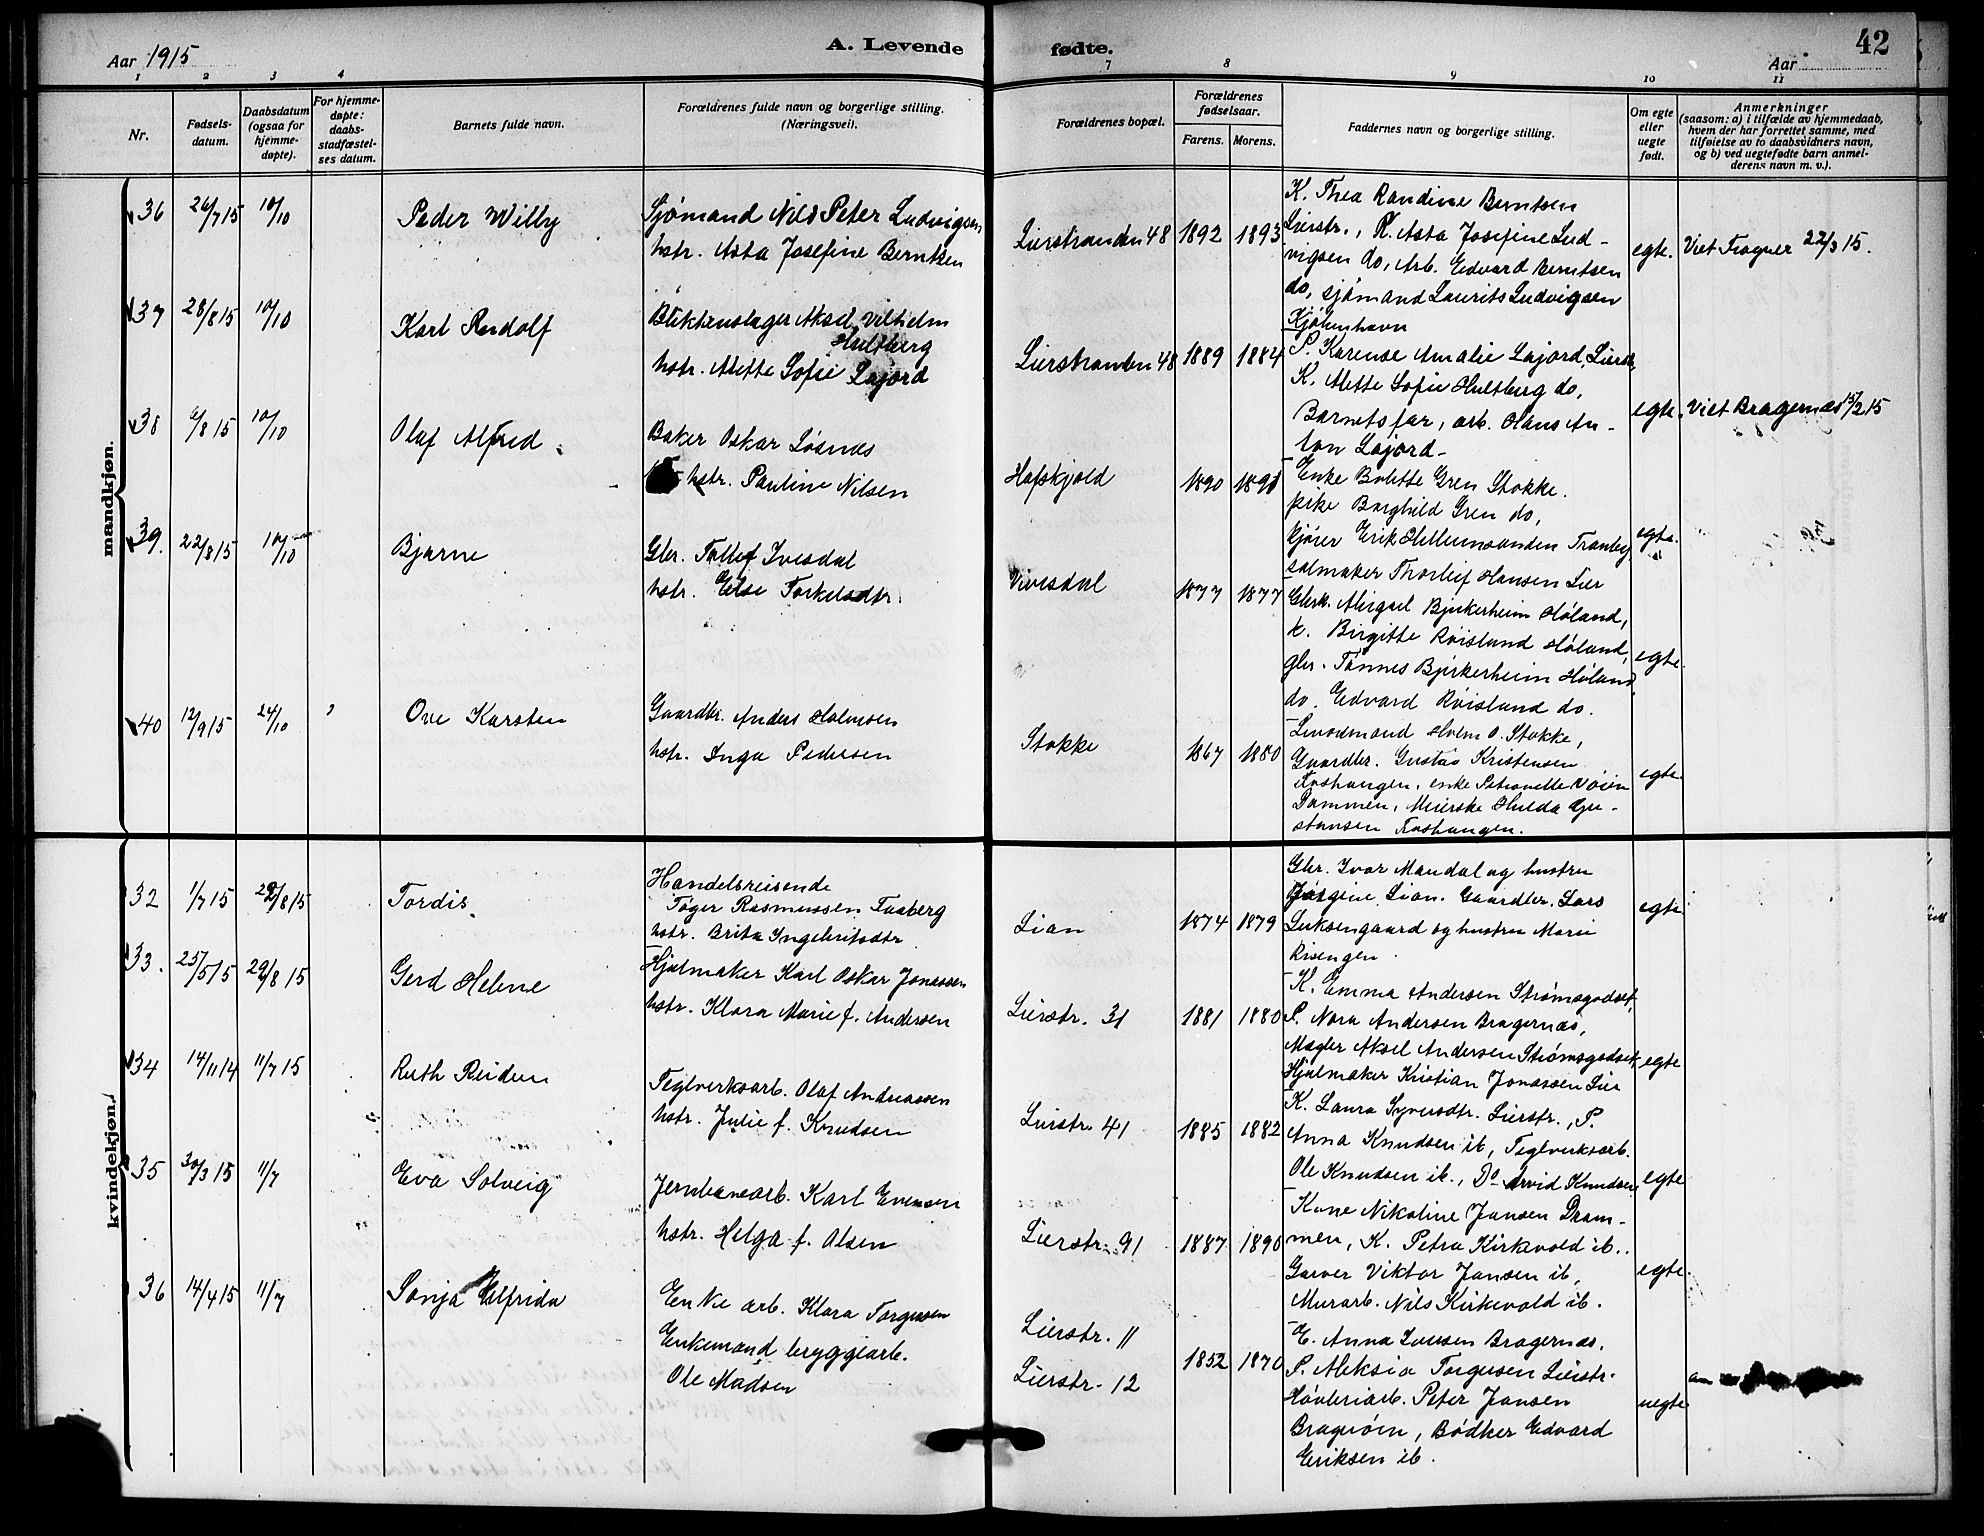 Aar 1915
A. Levende
fødte.
42
Aar
1 2 3 4
7 8 9 10 11
Nr.
Fødsels-
datum.
Daabsdatum
(ogsaa for
hjemme-
døpte).
For hjemme-
døpte:
daabs-
stadfæstel-
ses datum.
Barnets fulde navn.
Forældrenes fulde navn og borgerlige stilling.
(Næringsvei).
Forældrenes bopæl.
Forældrenes
fødselsaar.
Farens. Morens.
Faddernes navn og borgerlige stilling.
Om egte
eller
uegte
født.
Anmerkninger
(saasom: a) i tilfælde av hjemmedaab,
hvem der har forrettet samme, med
tilføielse av to daabsvidners navn,
og b) ved uegtefødte barn anmel-
derens navn m. v.).
mandkjøn.
36 26/7 15 10/10 Peder Wilby
Sjømand Nils Peter Ludvigsen
hstr. Asta Josefine Berntsen
Lierstranden 48 1892 1893
K. Thea Randine Berntsen
Lierstr., K. Asta Josefine Lud-
vigsen do, Arb. Edvard Berntsen
do, sjømand Laurits Ludvigsen
Kjøbenhavn
egte. Viet Frogner 22/3 15.
37 28/8 15 10/10 Karl Rudolf
Blikkenslager Aksel Vilhelm
Hultberg
hstr. Alette Sofie Lajord
Lierstranden 48 1889 1884
P. Karense Amalie Lajord, Lierstr,
K. Alette Sofie Hultberg do,
Barnets far, arb. Hans An-
ton Lajord
egte. Viet Bragernæs 15/2 15
38 6/8 15 10/10 Olaf Alfred
Baker Oskar Løsnæs
hstr. Pauline Nilsen
Hafskjold 1890 1891
Enke Bolette Gren Stokke.
pike Borghild Gren do,
kjører Erik Hellumsanden Tranby
salmaker Thorleif Hansen Lier
egte.
39. 22/8 15 10/10 Bjarne
Gbr. Tollef Ivesdal
hstr. Else Torkelsdtr.
Vivesdal 1877 1877
Gbrk. Abigael Bjerkerheim Høland,
k. Birgitte Røisland Høland,
gbr. Tønnes Bjerkerheim Høland
do. Edvard Røisland do.
egte.
40 12/9 15 24/10 Ove Karsten
Gaardbr. Anders Holmsen
hstr. Inga Pedersen
Stokke 1867 1880
Holm o. Stokke,
Gaardbr. Gustav Kristensen
enke Petronelle Vøien
Dammen, Meierske Hulda Gu-
stavsen
egte.
kvindekjøn.
32 1/7 15 29/8 15 Tordis
Handelsreisende
Tøger Rasmussen Faaberg
hstr. Brita Ingebritsdtr
Lian 1874 1879
Gbr. Ivar Mandal og hustru
Jørgine Lian. Gaardbr. Lars
Luksengaard og hustru Marie
Risengen.
egte
33. 25/5 15 29/8 15 Gerd Helene
Hjulmaker Karl Oskar Jonassen
hstr. Klara Marie f. Andersen
Lierstr. 31 1881 1880
K. Emma Andersen Strømsgodset,
P. Nora Andersen Bragernæs,
Mægler Aksel Andersen Strømsgodset,
Hjulmaker Kristian Jonassen Lier
egte
34 14/11 14 11/7 15 Ruth Reidun
Teglverksarb. Olaf Andreassen
hstr. Julie f. Knudsen
Lierstr. 41 1885 1882
K. Laura Syversdtr. Lierstr., P.
Anna Knudsen ib, Teglverksarb.
Ole Knudsen ib., Do Arvid Knudsen
egte
35 30/3 15 11/7 Eva Solveig
Jernbanearb. Karl Evensen
hstr. Helga f. Olsen
Lierstr. 91 1887 1890
Kone Nikoline Jansen Dram-
men, K. Petra Kirkevold ib..
Garver Viktor Jansen ib,
Murarb. Nils Kirkevold ib.
egte.
36 14/4 15 11/7 Sonja Elfrida
Enke arb. Klara Torgersen
Enkemand bryggearb.
Ole Madsen
Lierstr. 11
Lierstr. 12
1852 1870
E. Anna Iversen Bragernæs,
P. Aleksia Torgersen Lierstr.
Høvleriarb. Peter Jansen
Bragerøen, Bødker Edvard
Eriksen ib.
uegte